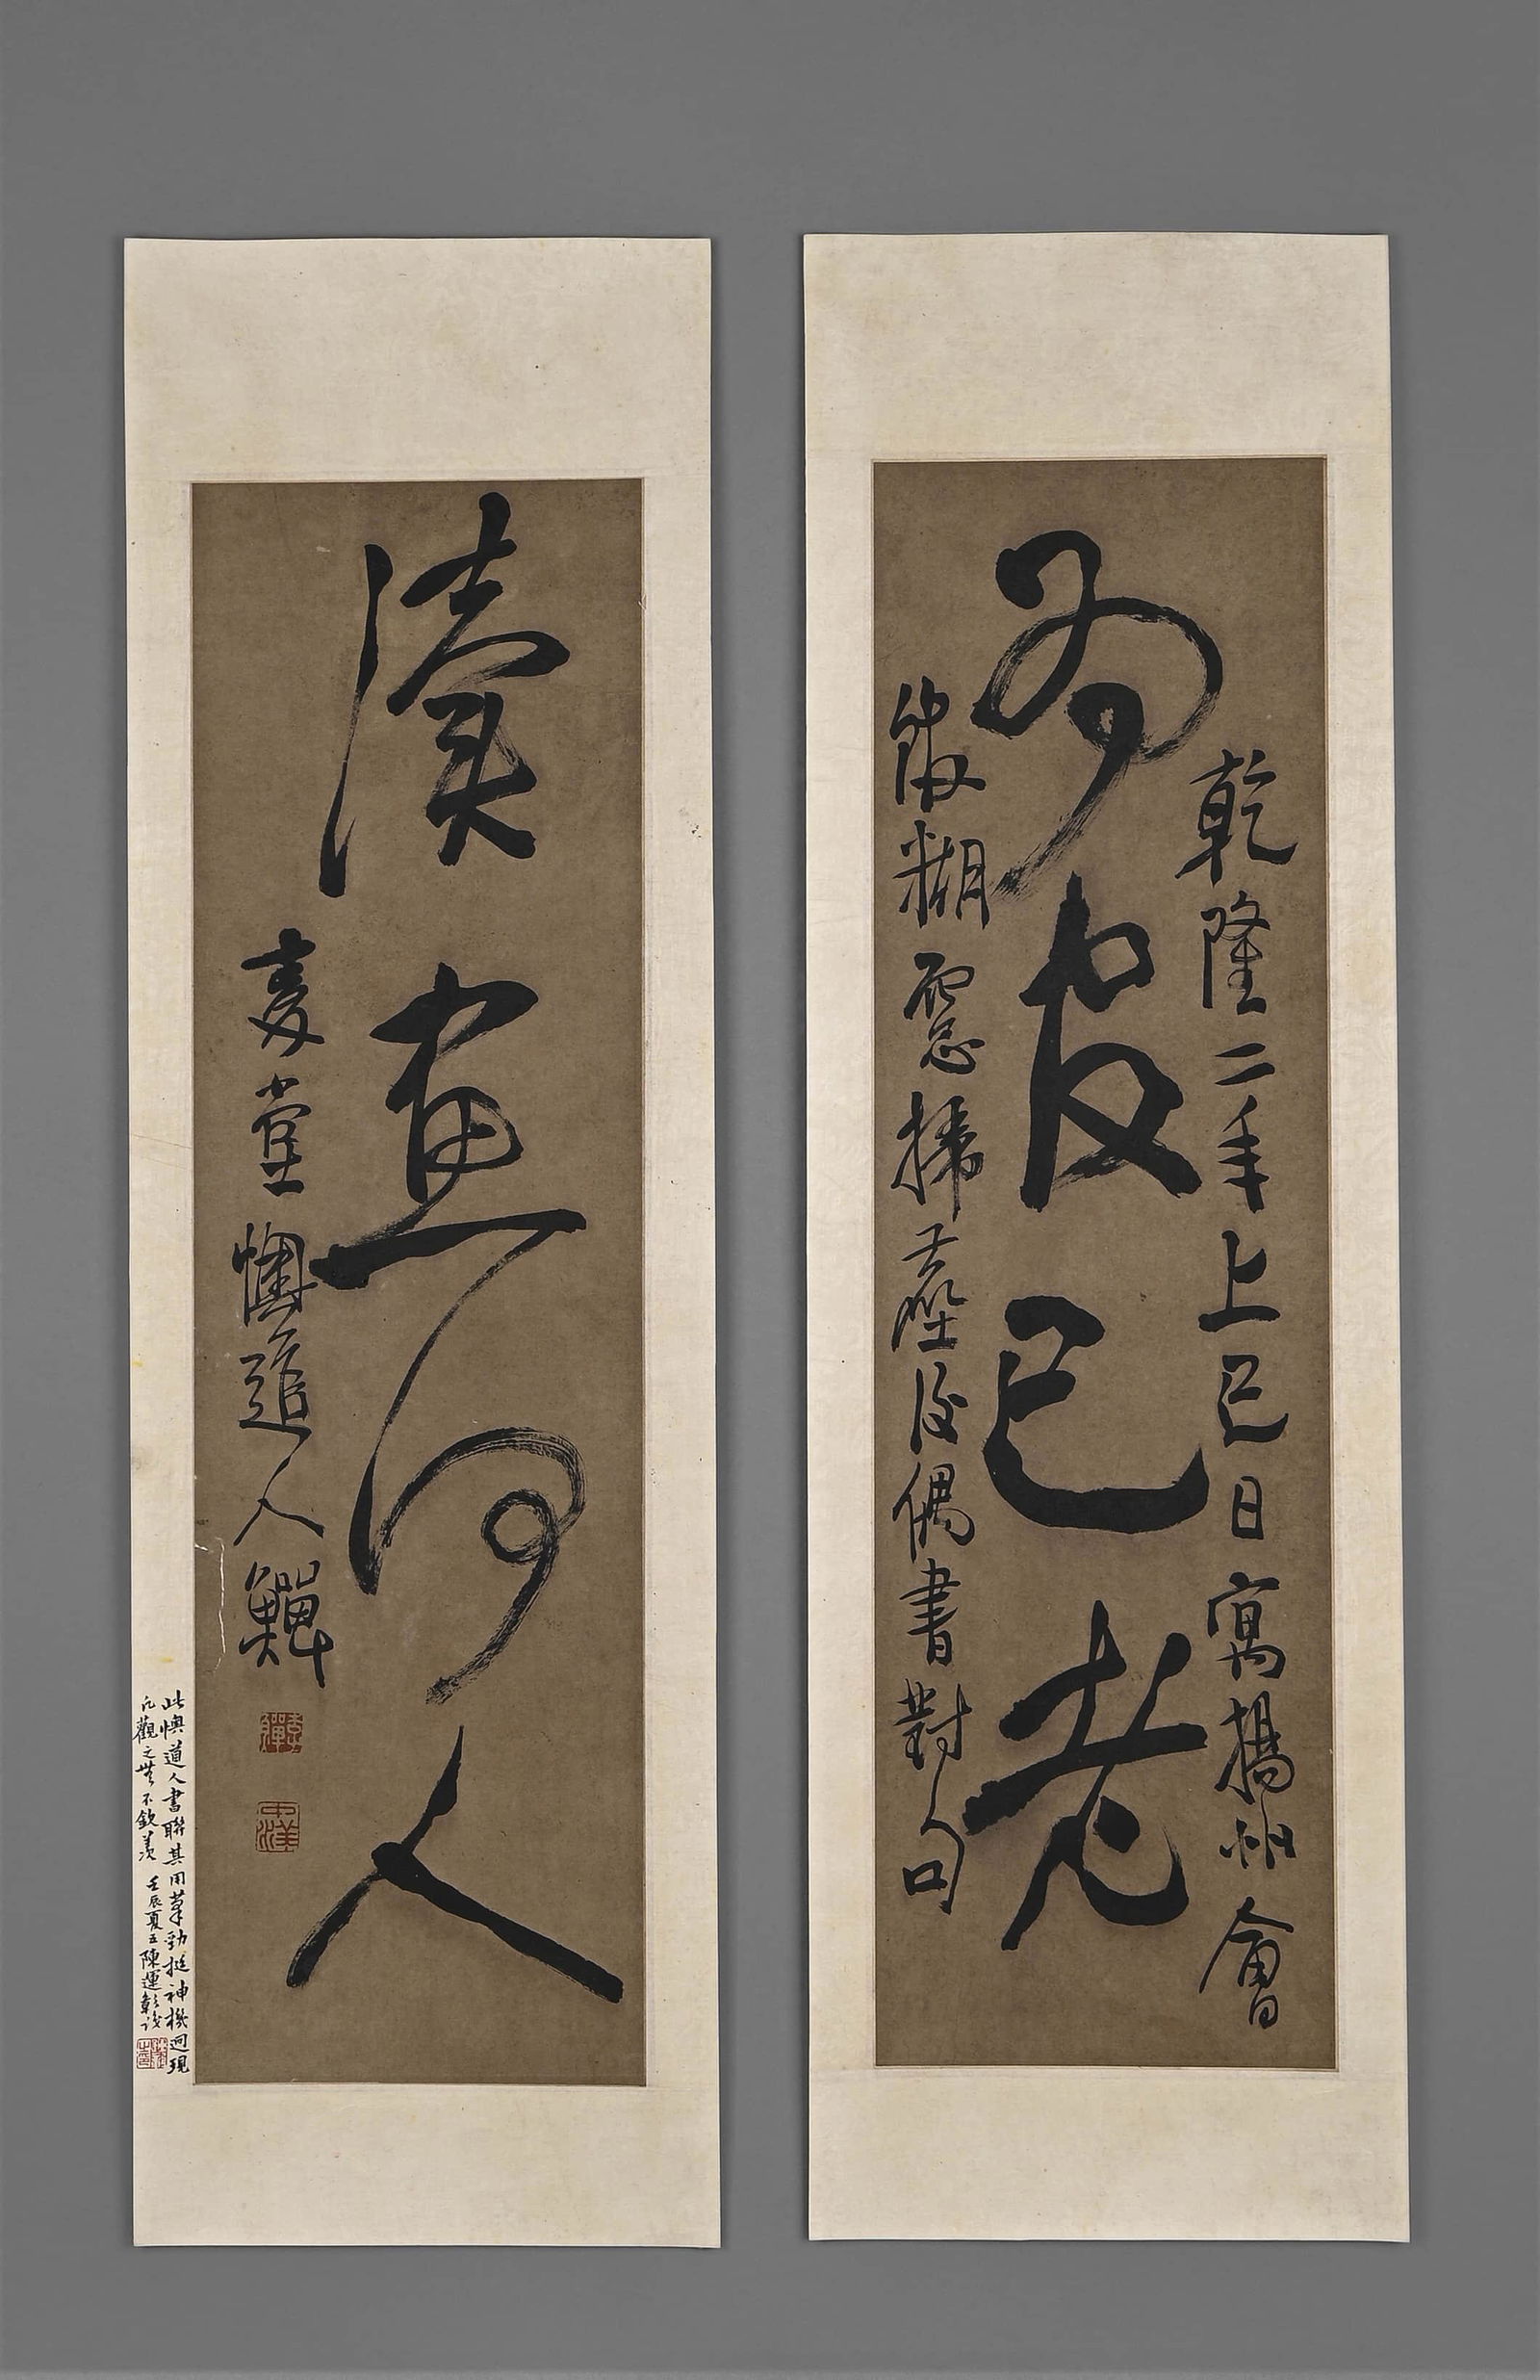 乾隆二年上巳日寓揚州會
已老
糊窓掃塵後偶書對句
讀畫何人
堂懊道人鱓
李鱓
中洋
此懊道人書聯其用筆勁挺神機迥現
凡觀之無不欽羨 壬辰夏五陳運彰識